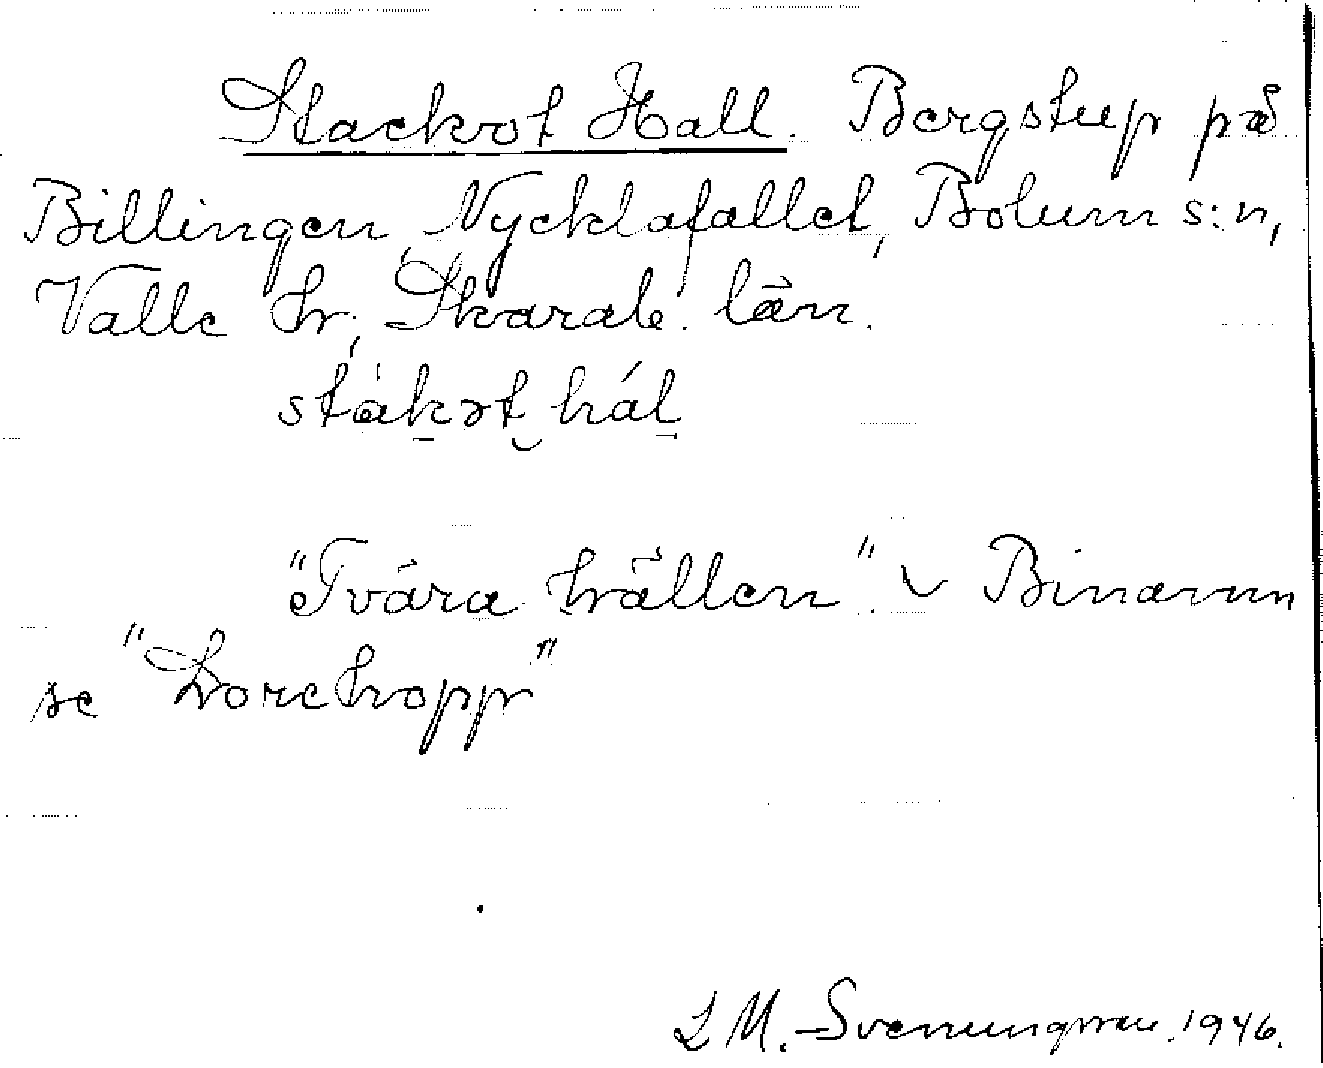 Stackot Hall. Bergstup på
Billingen, Nycklafallet, Bolum s:n,
Valle hr, Skarab. län.
"Tvära hällen".
se "Lorehopp"
L M. Svenungsson. 1946.